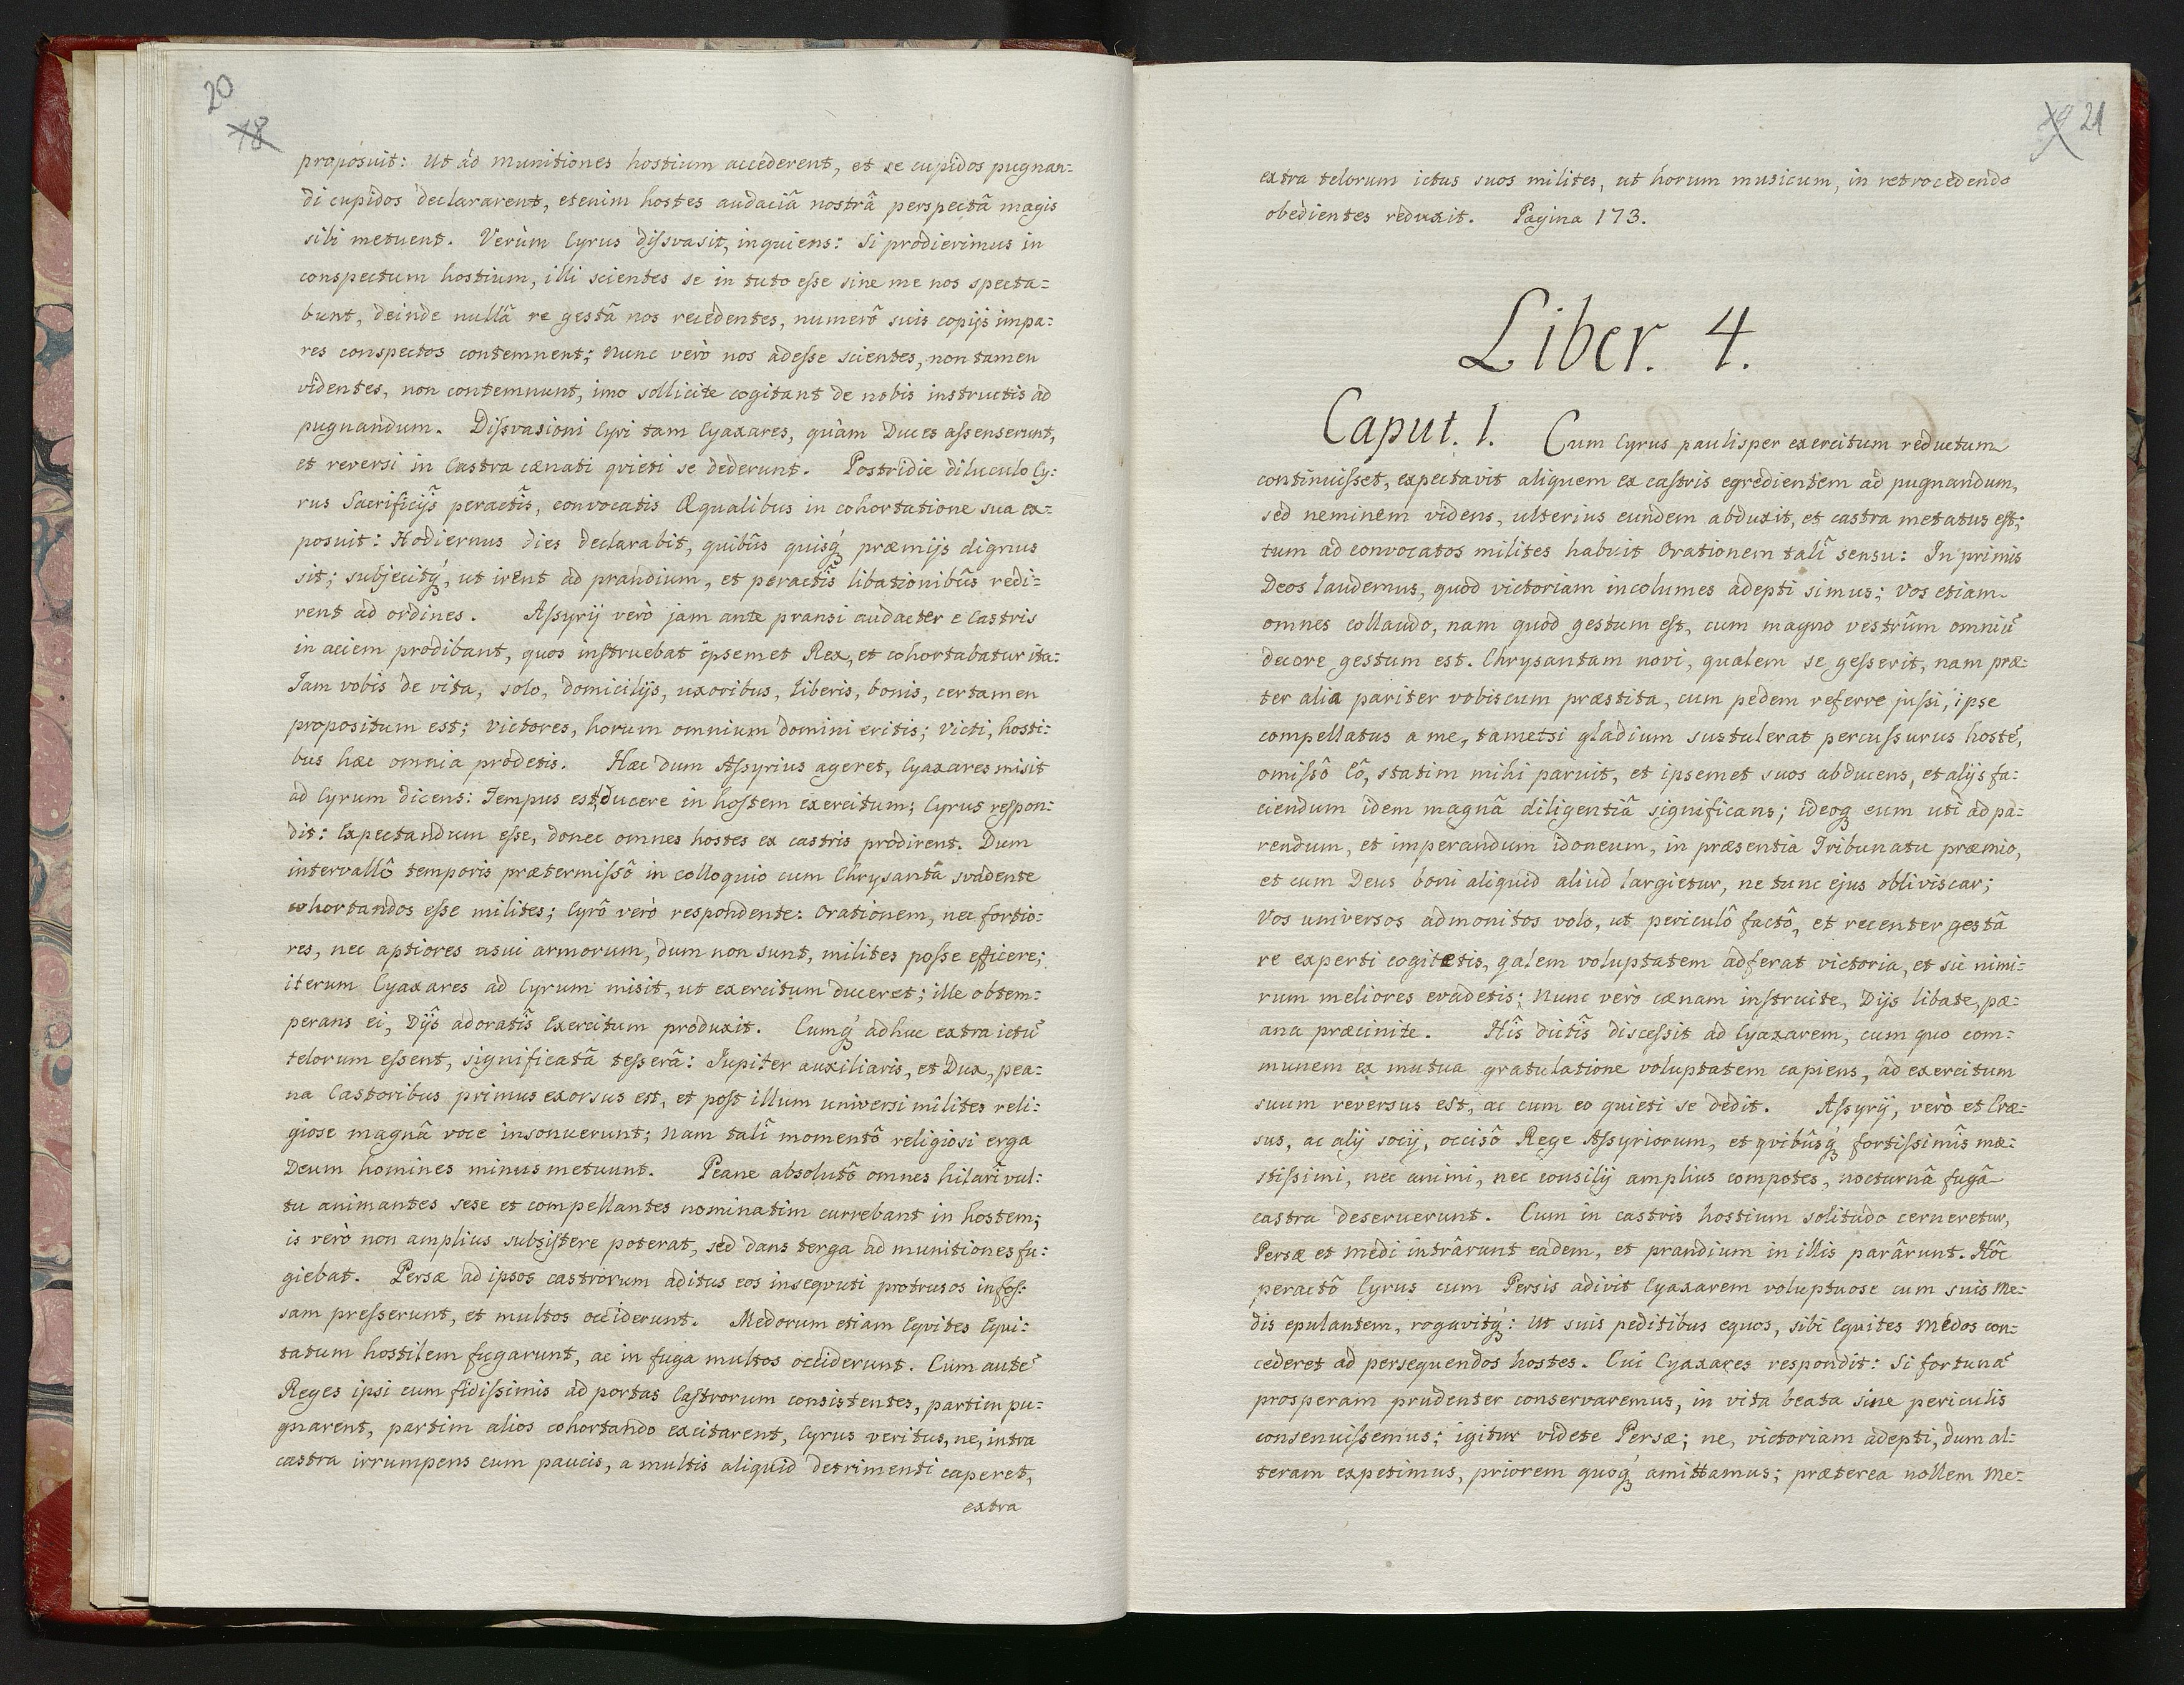 20
18
proposuit: Ut ad munitiones hostium accederent, et se cupidos pugnan=
di cupidos declararent, etenim hostes audaciâ nostrâ perspectâ magis
sibi metuent. Verùm Cyrus diſsvasit, inquiens: Si prodierimus in
conspectum hostium, illi scientes se in tuto eſse sine me nos specta=
bunt, deinde nullâ re gestâ nos recedentes, numerô suis copijs impa=
res conspectos contemnent; nunc verò nos adeſse scientes, non tamen
videntes, non contemnunt, imo sollicite cogitant de nobis instructis ad
pugnandum. Diſsvasioni Cyri tam Cyaxares, quàm Duces aſsenserunt,
et reversi in Castra cænati qvieti se dederunt. Postridie diluculo Cy=
rus Sacrificijs̃ peractis̃, convocatis Æqualibus in cohortatione sua ex=
posuit: Hodiernus dies declarabit, quibûs quisq́ præmijs dignus
sit; subjecitq́, ut irent ad prandium, et peractis̃ libationibûs redi=
rent ad ordines. Aſsyrij verò jam ante pransi audacter e Castris
in aciem prodibant, quos inſtruebat ipsemet Rex, et cohortabatur ita:
Iam vobis de vita, solo, domicilijs, uxoribus, liberis, bonis, certamen
propositum est; victores, horum omnium domini eritis; victi, hosti=
bus hæc omnia prodetis. Hæc dum Aſsyrius ageret, Cyaxares misit
ad Cyrum dicens: Tempus est, ducere in hoſtem exercitum; Cyrus reſpon=
dit: Expectandum eſse, donec omnes hostes ex castris prodirent. Dum
intervallô temporis prætermiſsô in colloquio cum Chrysantâ svadente
cohortandos eſse milites; Cyrô verò respondente: Orationem, nec fortio=
res, nec aptiores usui armorum, dum non sunt, milites poſse efficere;
iterum Cyaxares ad Cyrum misit, ut exercitum duceret; ille obtem=
perans ei, Dijs̃ adoratis̃ Exercitum produxit. Cumq́ adhuc extra ictũ
telorum eſsent, significatâ teſserâ: Iupiter auxiliaris, et Dux, pea=
na Castoribus primus exorsus est, et poſt illum universi milites reli=
giose magnâ voce insonuerunt; nam talî momentô religiosi erga
Deum homines minus metuunt. Peane absolutô omnes hilarî vul=
tu animantes sese et compellantes nominatim currebant in hostem;
is verò non amplius subsiſtere poterat, sed dans terga ad munitiones fu=
giebat. Persæ ad ipsos castrorum aditus eos inseqvuti protrusos in foſ=
sam preſserunt, et multos occiderunt. Medorum etiam Eqvites Eqvi=
tatum hostilem fugarunt, ac in fuga multos occiderunt. Cum autẽ
Reges ipsi cum fidiſsimis ad portas Caſtrorum consistentes, partim pu=
gnarent, partim alios cohortando excitarent, Cyrus veritus, ne, intra
castra irrumpens cum paucis, a multis aliquid detrimenti caperet,
extra
19 21
extra telorum ictus suos milites, ut horum musicum, in retrocedendo
obedientes reduxit. Pagina 173.
Liber. 4.
Caput. 1. Cum Cyrus paulisper exercitum reductum
continuiſset, expectavit aliquem ex caſtris egredientem ad pugnandum,
sed neminem videns, ulterius eundem abduxit, et castra metatus eſt;
tum ad convocatos milites habuit Orationem talî sensu: In primis
Deos laudemus, quod victoriam incolumes adepti simus; vos etiam
omnes collaudo, nam quod gestum eſt, cum magno vestrûm omniũ
decore gestum est. Chrysantam novi, qualem se geſserit, nam præ=
ter alia pariter vobiscum præstita, cum pedem referre juſsi, ipse
compellatus a me, tametsi gladium sustulerat percuſsurus hostẽ,
omiſsô Eô, statim mihi paruit, et ipsemet suos abducens, et alijs fa=
ciendum idem magnâ diligentiâ significans; ideoq eum uti ad pa=
rendum, et imperandum idoneum, in præsentia Tribunatu præmio,
et cum Deus boni aliquid aliud largietur, ne tunc ejus obliviscar;
Vos universos admonitos volo, ut periculô factô, et recenter gestâ
re experti cogitetis, qalem voluptatem adferat victoria, et sic nimi=
rum meliores evadetis; Nunc verò cænam inſtruite, Dijs libate, pæ=
ana præcinite. Hîs dictîs disceſsit ad Cyaxarem, cum quo com=
munem ex mutua gratulatione voluptatem capiens, ad exercitum
suum reversus est, ac cum eo quieti se dedit. Aſsyrij, verò et Cræ=
sus, ac alij socij, occisô Rege Aſsyriorum, et qvibûsq́ fortiſsimîs mæ=
stiſsimi, nec animi, nec consilij amplius compotes, nocturnâ fugâ
castra deseruerunt. Cum in castris hostium solitudo cerneretur,
Persæ et Medi intrârunt eadem, et prandium in illis parârunt. Hôc
peractô Cyrus cum Persis adivit Cyaxarem voluptuose cum suis Me=
dis epulantem, rogavitq́: Ut suis peditibus equos, sibi Equites Medos con=
cederet ad persequendos hostes. Cui Cyaxares respondit: Si fortunã
prosperam prudenter conservaremus, in vita beata sine periculis
consenuiſsemus; igitur videte Persæ; ne, victoriam adepti, dum al=
teram expetimus, priorem quoq́ amittamus; præterea nollem Me=